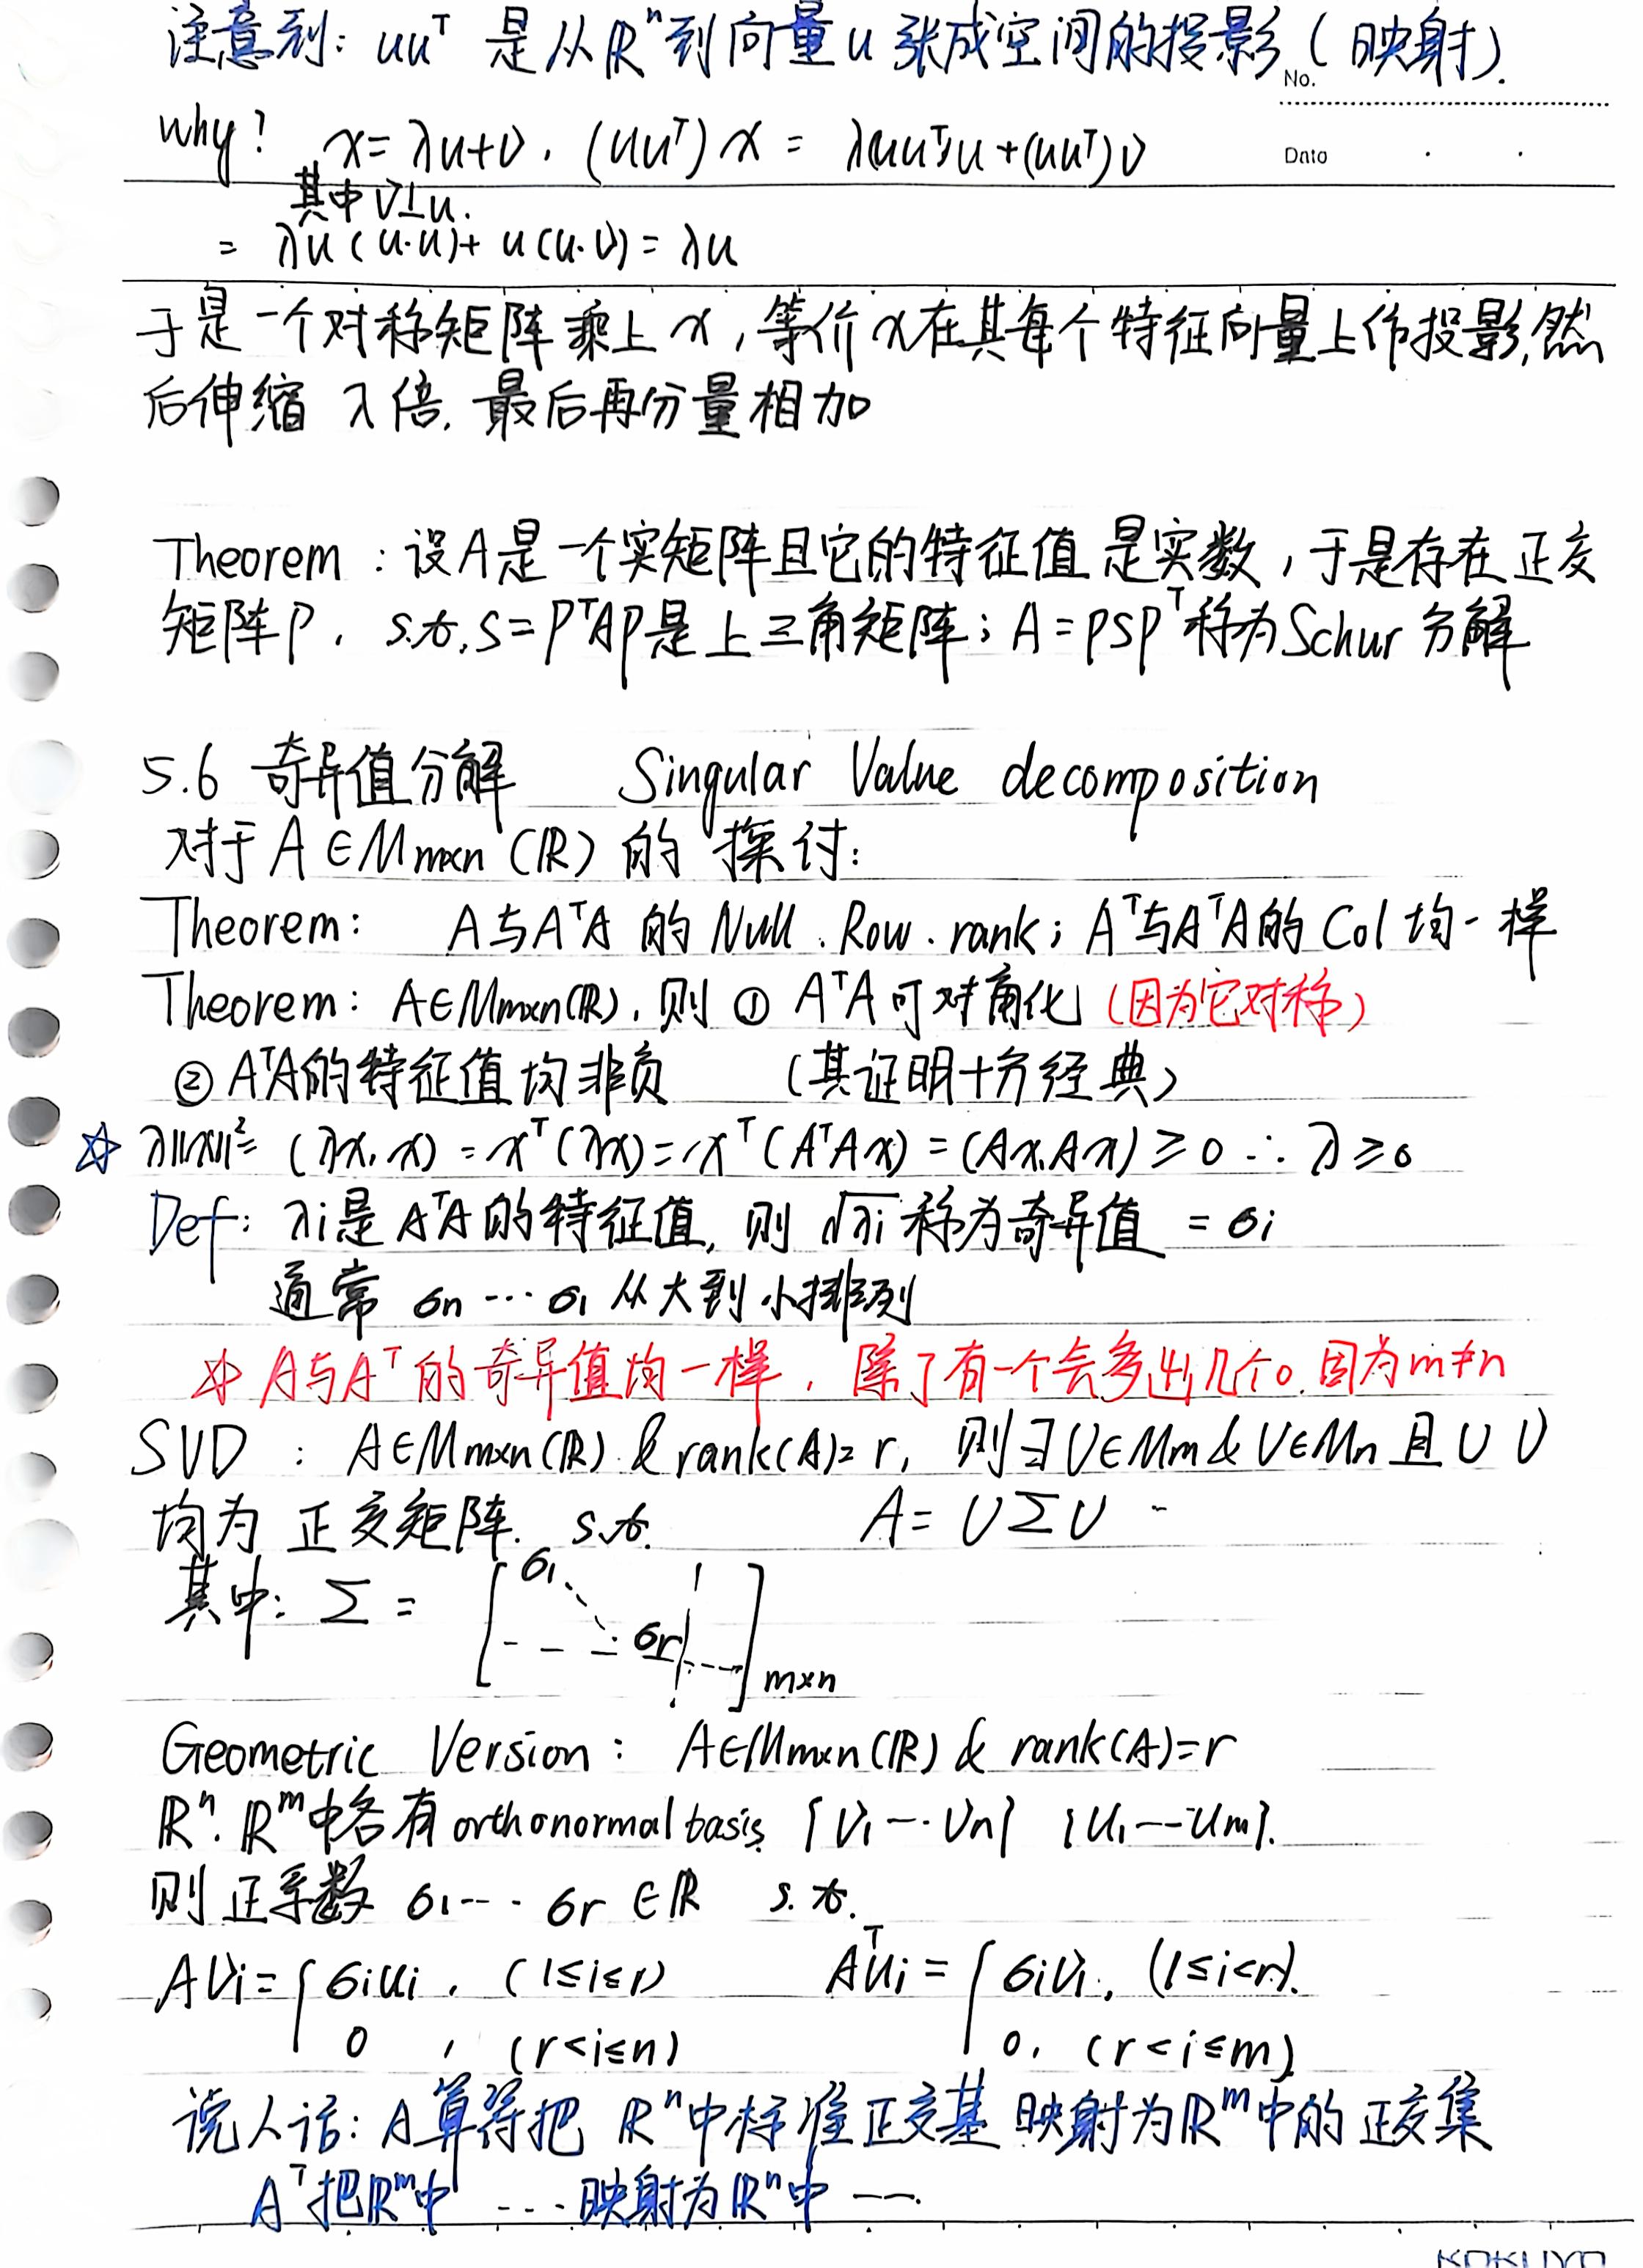 注意到: uuᵀ 是从ℝⁿ到向量u张成空间的投影(映射).
No.
Why? x=λu+v, (uuᵀ)x = λ(uuᵀ)u+(uuᵀ)v
Date
其中v⊥u.
= λu(u·u)+u(u·v)=λu
于是一个对称矩阵乘上x,等价x在其每个特征向量上作投影,然
后伸缩 λ倍, 最后再分量相加
Theorem : 设A是一个实矩阵且它的特征值是实数,于是存在正交
矩阵P. s.t. S=PᵀAP是上三角矩阵; A=PSPᵀ称为Schur分解
5.6 奇异值分解 Singular Value decomposition
对于A∈Mm×n(ℝ)的探讨:
Theorem: A与AᵀA的Null.Row.rank; Aᵀ与AᵀA的Col均一样
Theorem: A∈Mm×n(ℝ), 则 ① AᵀA可对角化(因为它对称)
② AᵀA的特征值均非负 (其证明十分经典)
☆ λ||x||²= (λx,x) = xᵀ(λx)=xᵀ(AᵀAx)=(Ax,Ax)≥0 ∴ λ≥0
Def: λi是AᵀA的特征值, 则 √λi 称为奇异值 = σi
通常 σn ··· σ₁ 从大到小排列
☆ A与Aᵀ的奇异值均一样, 除了有一个会多出几个0.因为m≠n
SVD : A∈Mm×n(ℝ) & rank(A)=r, 则∃U∈Mm & V∈Mn 且 U V
均为 正交矩阵. s.t. A= UΣV
其中: Σ = [σ₁ ⋱ σr]m×n
Geometric Version: A∈Mm×n(ℝ) & rank(A)=r
ℝⁿ.ℝᵐ中各有orthonormal basis {v₁ --- vn} {u₁ --- um}.
则正系数 σ₁ --- σr ∈ℝ s.t.
Avi={ σiui , (1≤i≤r) Aᵀui = { σivi, (1≤i<r).
0 , (r<i≤n) 0, (r<i≤m)
说人话: A算得把 ℝⁿ中标准正交基 映射为ℝᵐ中的正交集
Aᵀ把ℝᵐ中 --- 映射为ℝⁿ中 ---